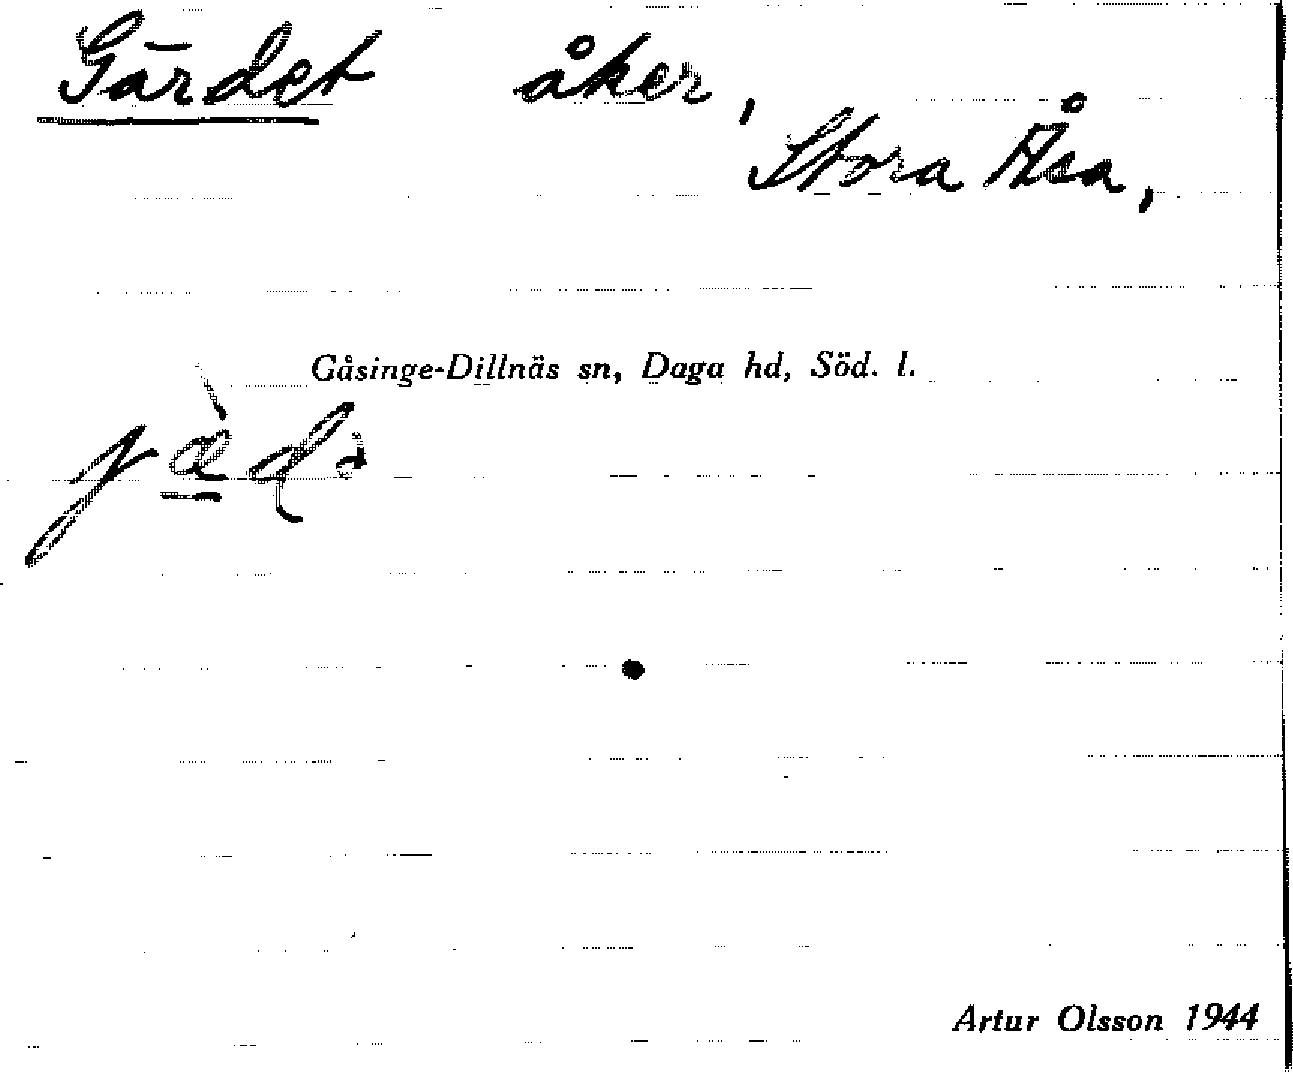 Gärdet åker,
Stora Åsa,
Gåsinge-Dillnäs sn, Daga hd, Söd. l.
Artur Olsson 1944